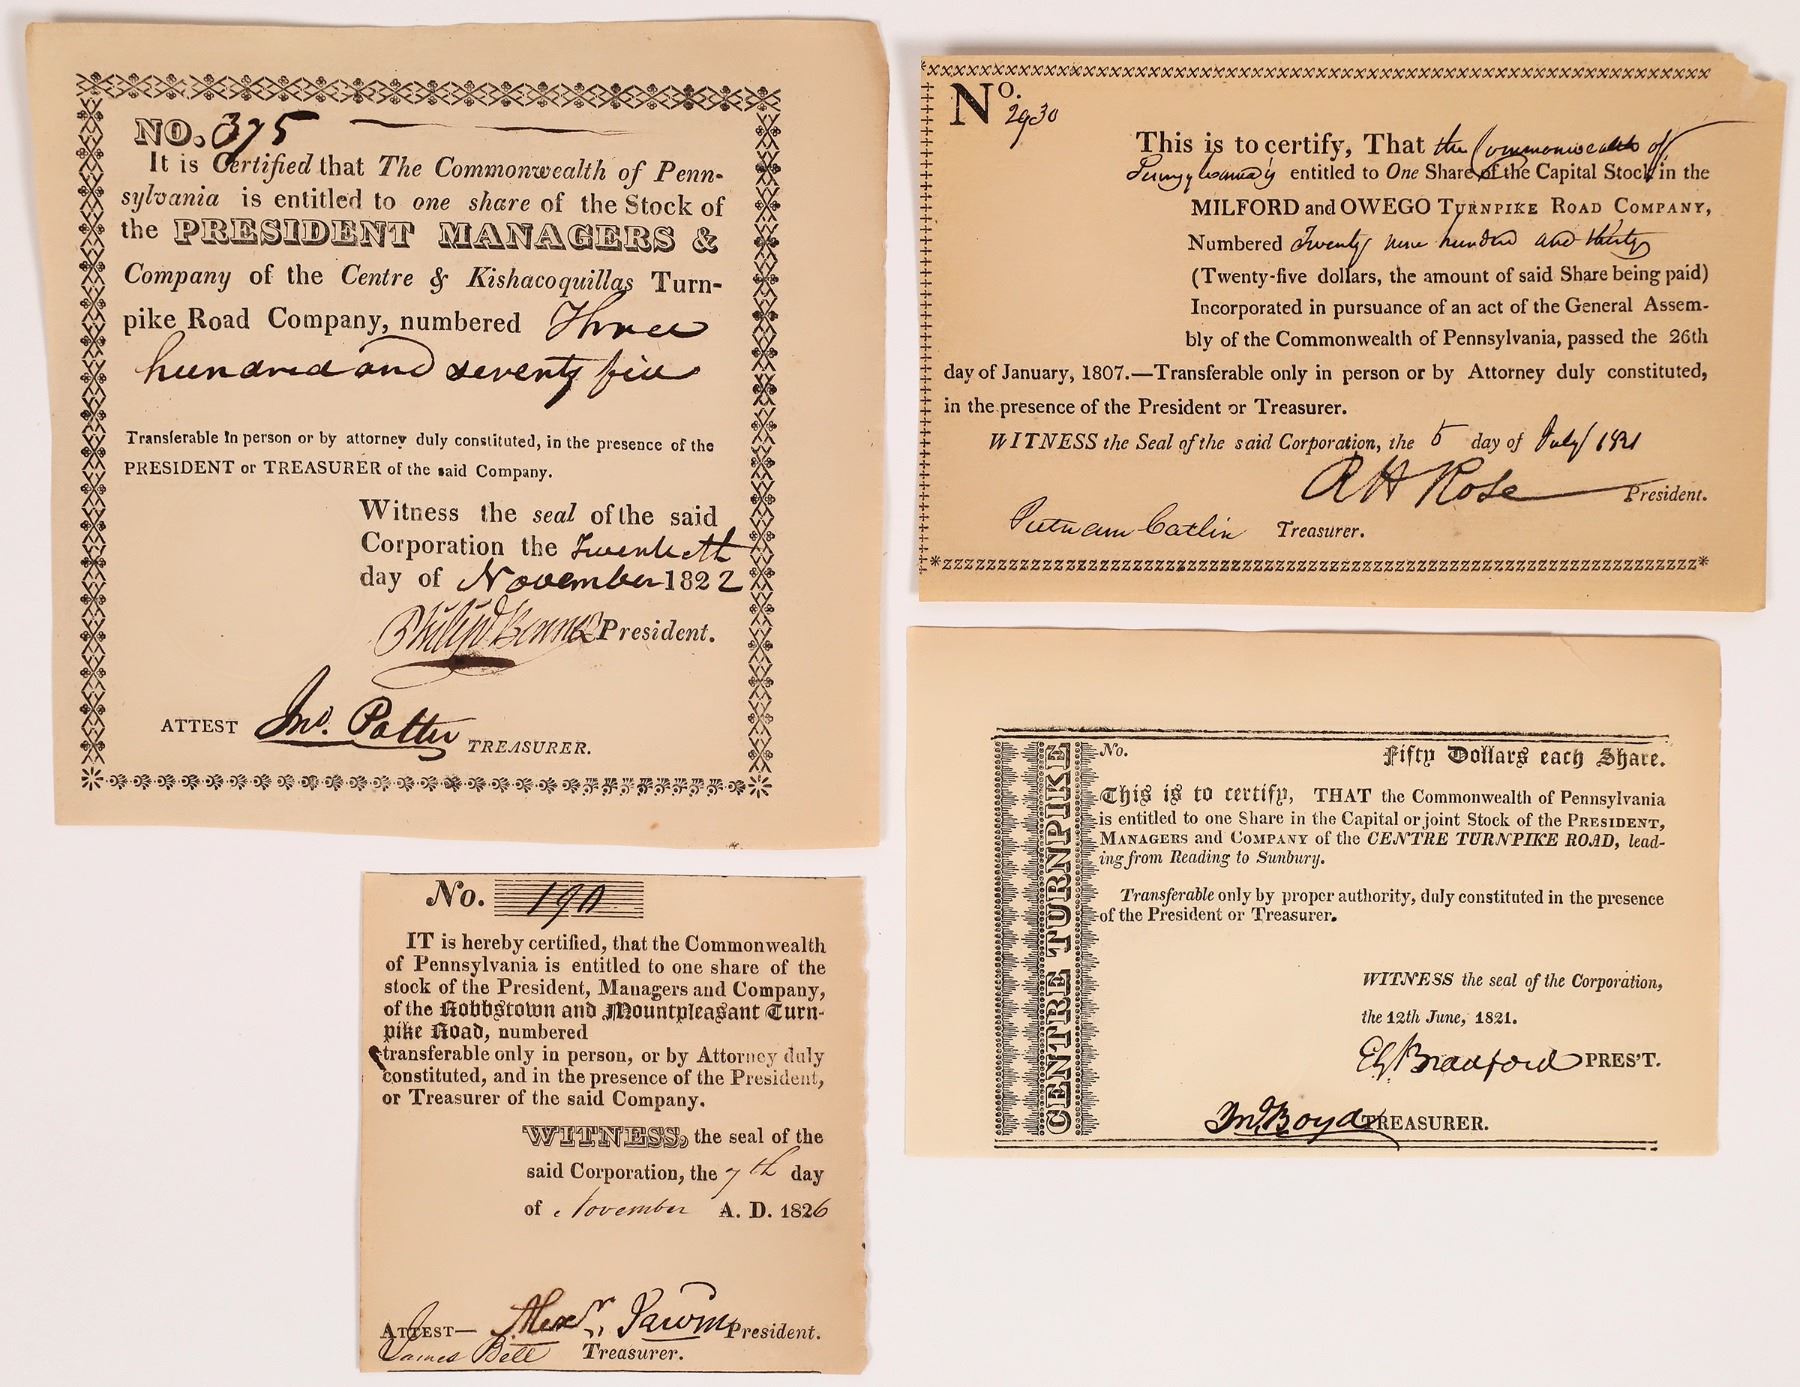 NO. 375
It is Certified that The Commonwealth of Penn-
sylvania is entitled to one share of the Stock of
the PRESIDENT MANAGERS &
Company of the Centre & Kishacoquillas Turn-
pike Road Company, numbered Three
hundred and seventy five
Transferable in person or by attorney duly constituted, in the presence of the
PRESIDENT or TREASURER of the said Company.
Witness the seal of the said
Corporation the Twentieth
day of November 1822
Philip Benner President.
ATTEST Jno. Potter TREASURER.
No. 2930
This is to certify, That the Commonwealth of
Pennsylvania is entitled to One Share of the Capital Stock in the
MILFORD and OWEGO TURNPIKE ROAD COMPANY,
Numbered Twenty nine hundred and thirty
(Twenty-five dollars, the amount of said Share being paid)
Incorporated in pursuance of an act of the General Assem-
bly of the Commonwealth of Pennsylvania, passed the 26th
day of January, 1807.—Transferable only in person or by Attorney duly constituted,
in the presence of the President or Treasurer.
WITNESS the Seal of the said Corporation, the 5 day of July 1821
R H Rose President.
Putnam Catlin Treasurer.
CENTRE TURNPIKE
No. Fifty Dollars each Share.
This is to certify, THAT the Commonwealth of Pennsylvania
is entitled to one Share in the Capital or joint Stock of the PRESIDENT,
MANAGERS and COMPANY of the CENTRE TURNPIKE ROAD, lead-
ing from Reading to Sunbury.
Transferable only by proper authority, duly constituted in the presence
of the President or Treasurer.
WITNESS the seal of the Corporation,
the 12th June, 1821.
Bradford PRES'T.
Jno Boyd TREASURER.
CENTRE TURNPIKE
No. 190
IT is hereby certified, that the Commonwealth
of Pennsylvania is entitled to one share of the
stock of the President, Managers and Company,
of the Robbstown and Mountpleasant Turn-
pike Road, numbered
transferable only in person, or by Attorney duly
constituted, and in the presence of the President,
or Treasurer of the said Company.
WITNESS, the seal of the
said Corporation, the 7th day
of November A. D. 1826
ATTEST— Alexr. President.
James Bell Treasurer.